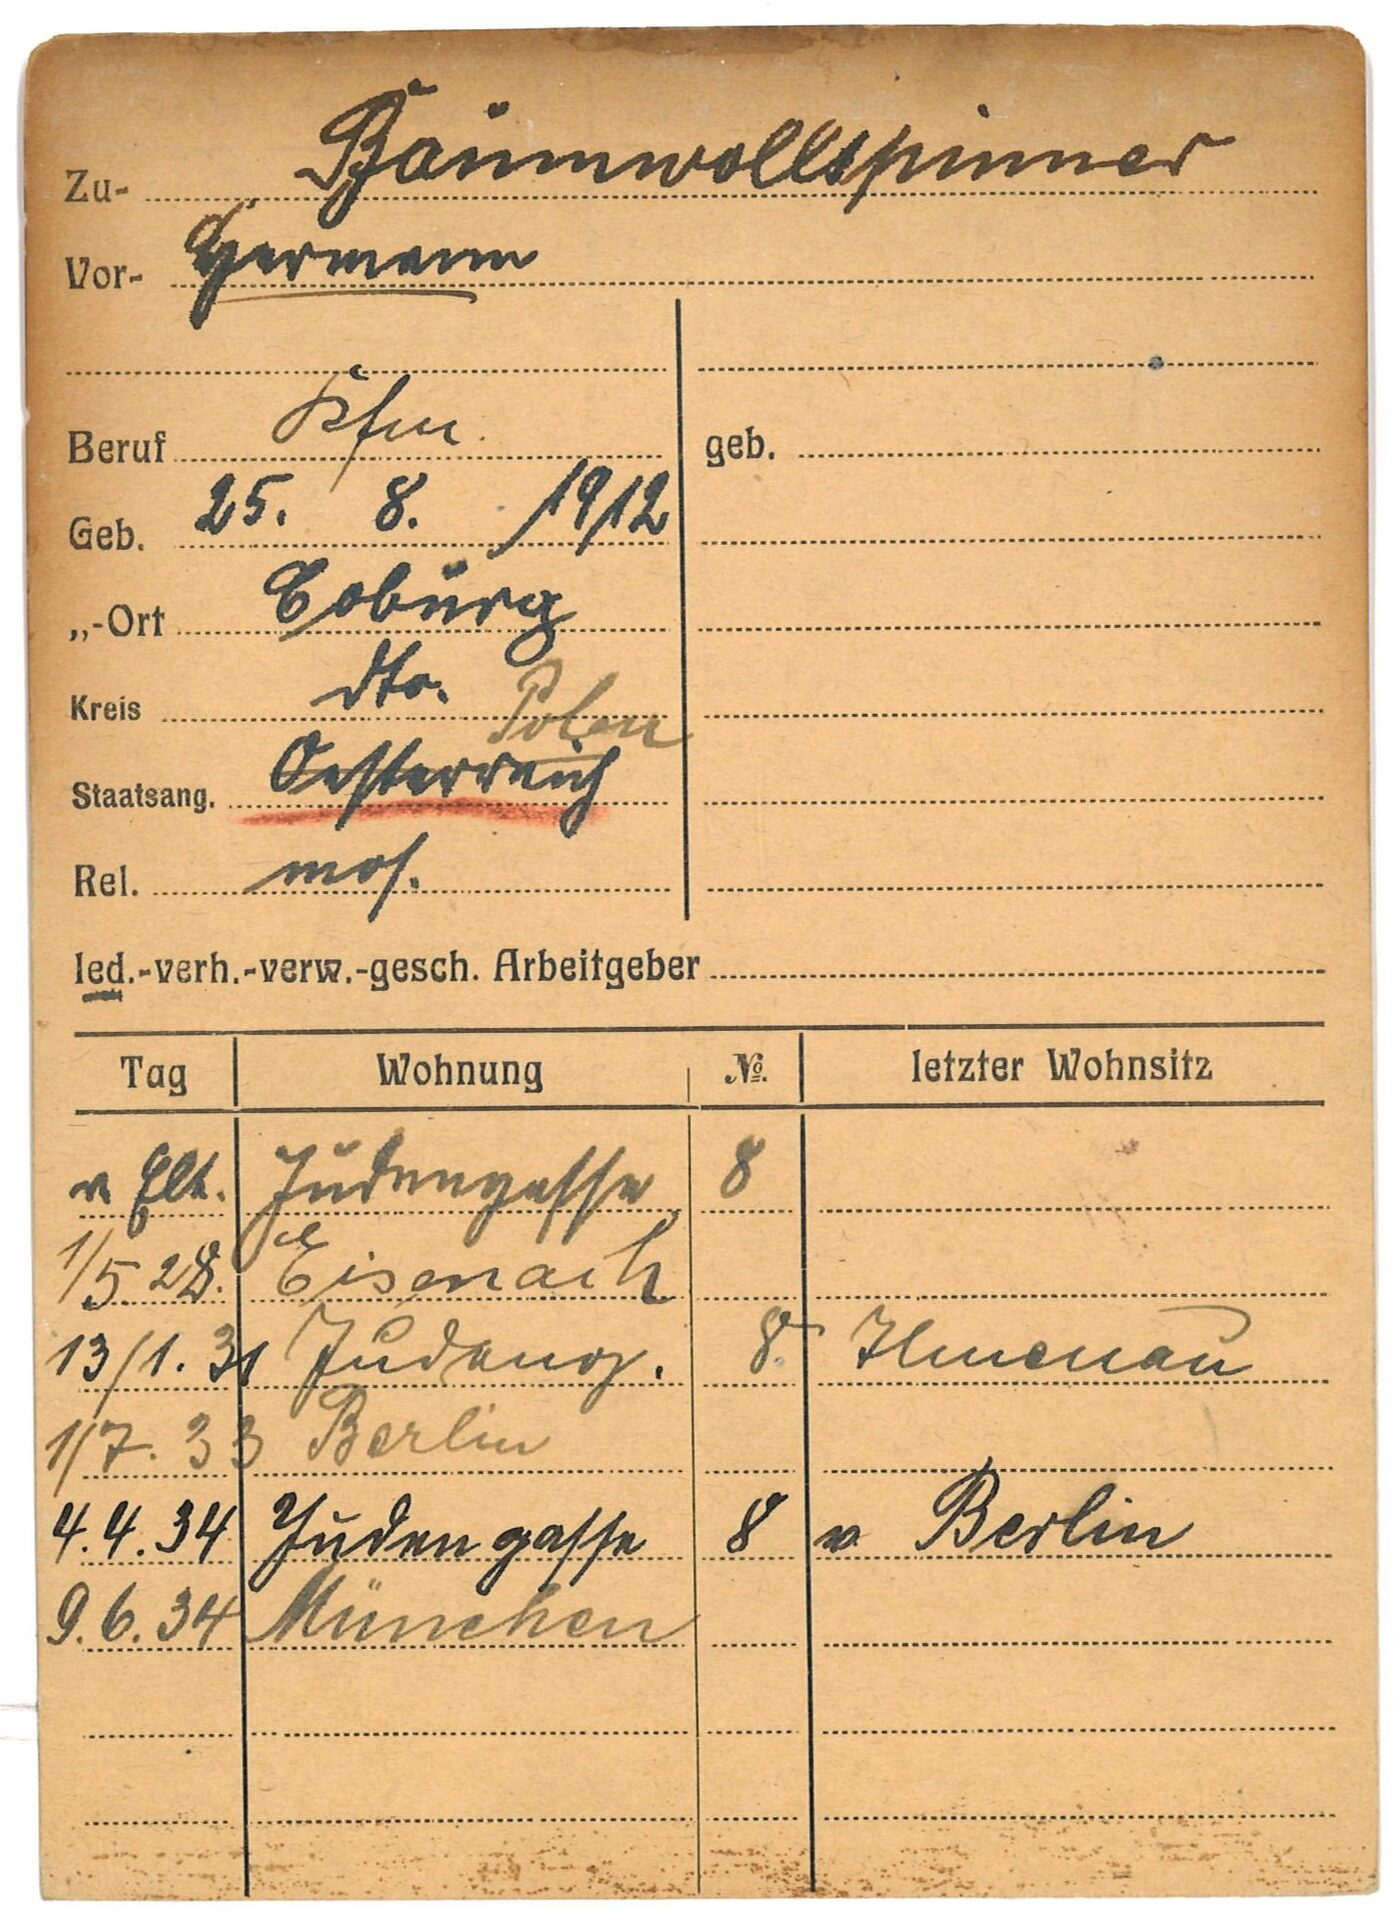 Zu- Baumwollspinner
Vor- Hermann
Beruf Kfm.
geb.
Geb. 25. 8. 1912
„-Ort Coburg
Kreis dto.
Polen
Staatsang. Oesterreich
Rel. mos.
led.-verh.-verw.-gesch. Arbeitgeber
Tag Wohnung No. letzter Wohnsitz
v Elt. Judengasse 8
1/5 28. Eisenach
13/1. 31 Judeng. 8 Ilmenau
1/7. 33 Berlin
4.4.34 Judengasse 8 v Berlin
9.6.34 München